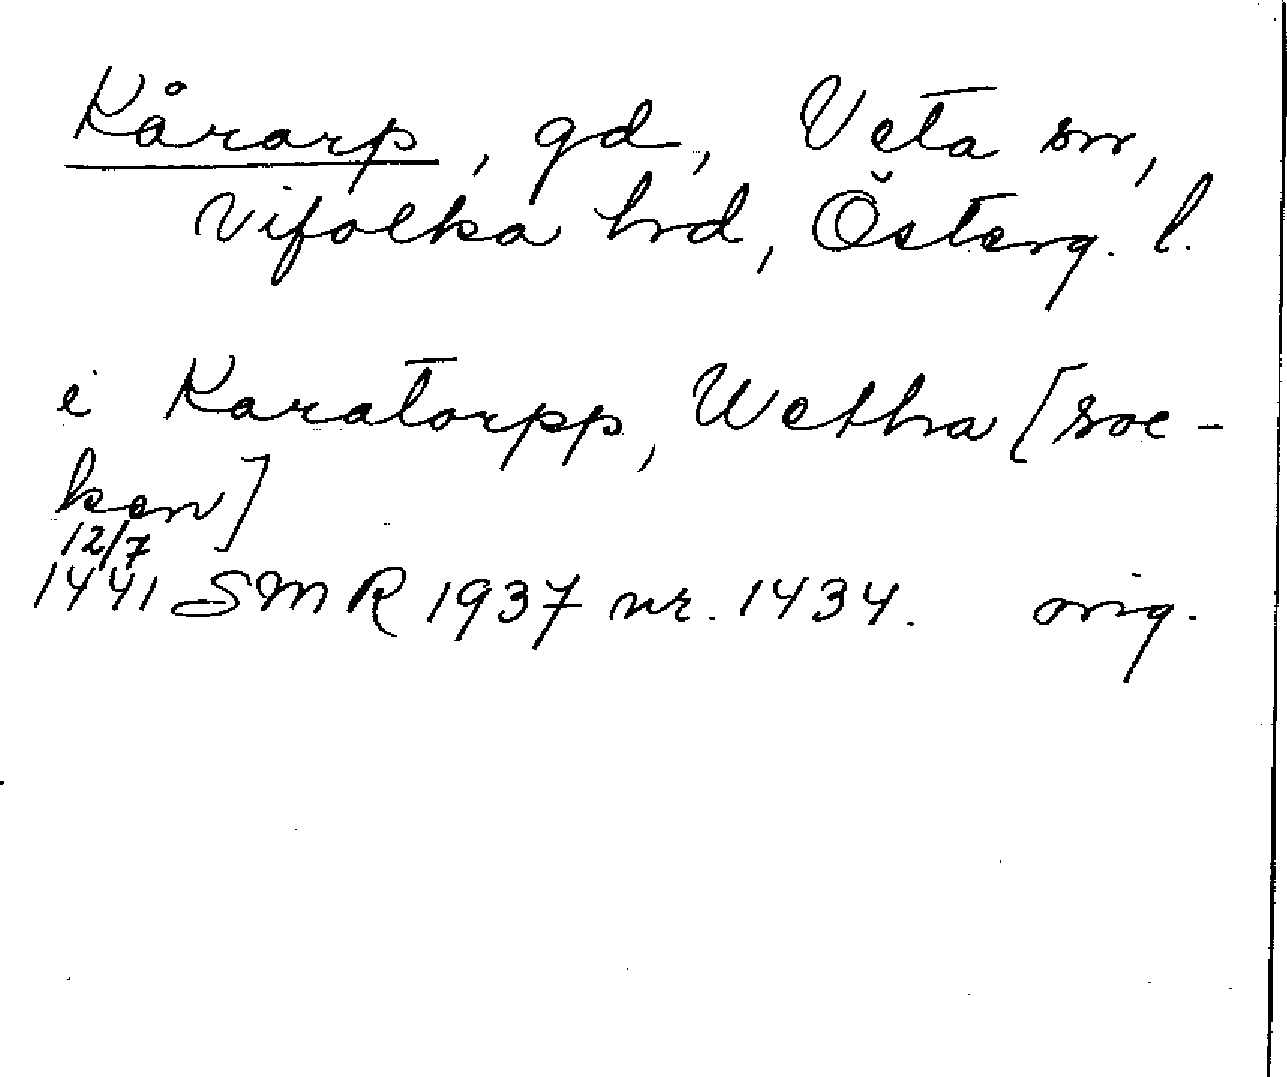 Kårarp, gd, Veta sn,
Vifolka hrd, Österg. l.
i Karatorpp, Wetha [soc-
ken]
12/7
1441 SMR 1937 nr. 1434. orig.